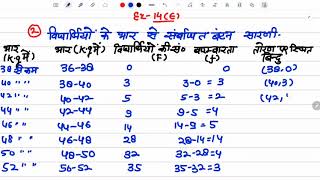 Ex-14(G)
② विद्यार्थियों के भार से संबंधित बंटन सारणी.
भार (kg में) भार (kg में) विद्यार्थियों की सं० (F) बारम्बारता (f) तोरण पर स्थित बिन्दु
38 से कम 36-38 0 0 (38,0)
40 " " 38-40 3 3-0=3 (40,3)
42 " " 40-42 5 5-3=2 (42,
44 " " 42-44 9 9-5=4
46 " " 44-46 14 14-9=5
48 " " 46-48 28 28-14=14
50 " " 48-50 32 32-28=4
52 " " 50-52 35 35-32=3